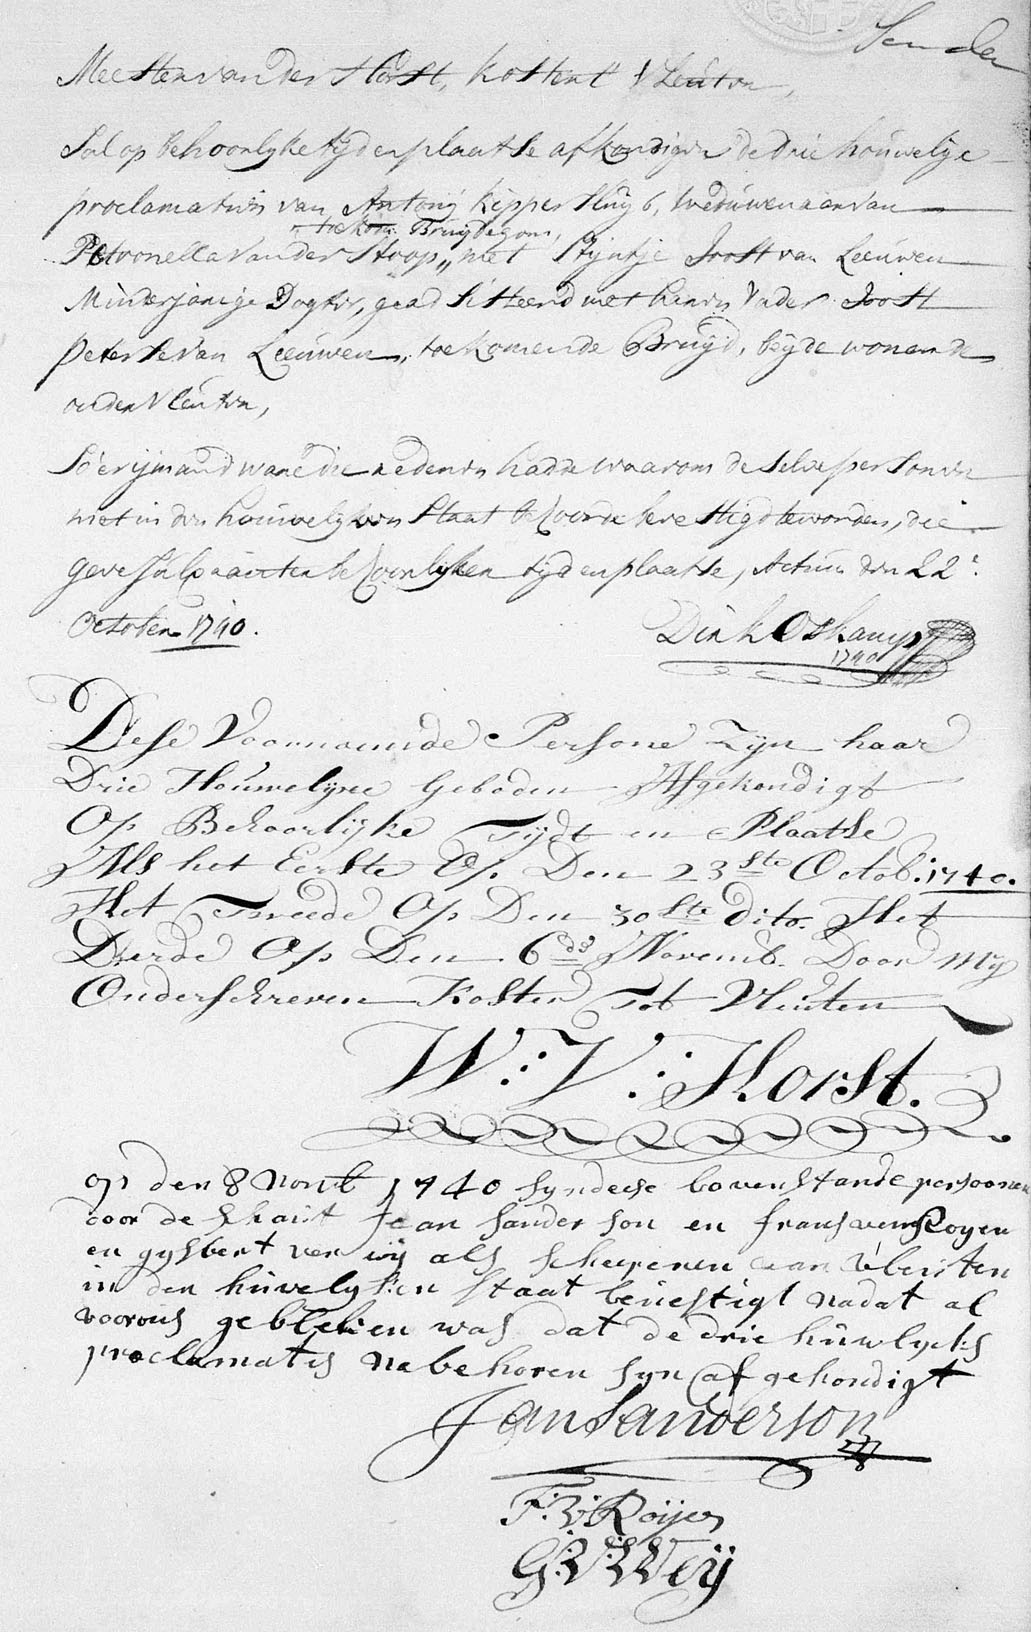 Meester van der Horst, Koster te Vleuten,
Sal op behoorlyke tyd en plaatse afkondigen de drie houwelyxe
proclamatien van Antony Kipper Huyb, weduwenaer van
toekom: Bruydegom,
Petronella van der Stoop,, met Stijntje Joost van Leeuwen
Minderjarige Dogter, geadsisteerd met haren Vader Joost
Peterse van Leeuwen, toekomende Bruyd, beyde wonende
onder Vleuten,
So'er ijmand ware die redenen hadde waarom deselve personen
niet in den houwelyken Staat behoorde bevestigd te worden, die
geve sulx te behoorlyken tyd en plaatse, Actum den 22e.
October 1740.
Dirk Oskamp
1740
Dese Voornoemde Persone Zijn haar
Drie Houwelijxe Geboden Afgekondigt
Op Behoorlijke Tijdt en Plaatse
Als het Eerste Op Den 23ste Octob: 1740.
Het Tweede Op Den 30ste dito. Het
Derde Op Den 6de Novemb. Door Mij
Onderschreven Koster Tot Vleuten
W: V: Horst.
op den 8 novb 1740 syn dese bovenstande persoonen
door de Schout Jean Sanderson en frans van Royen
en gysbert ver wij als schepenen van Vleuten
in den huwelyken staat bevestigt nadat al
voorens gebleken was dat de drie huwlycks
proclamatis na behoren syn af gekondigt
Jan Sanderson
F: V: Roijen
G: V: Weij